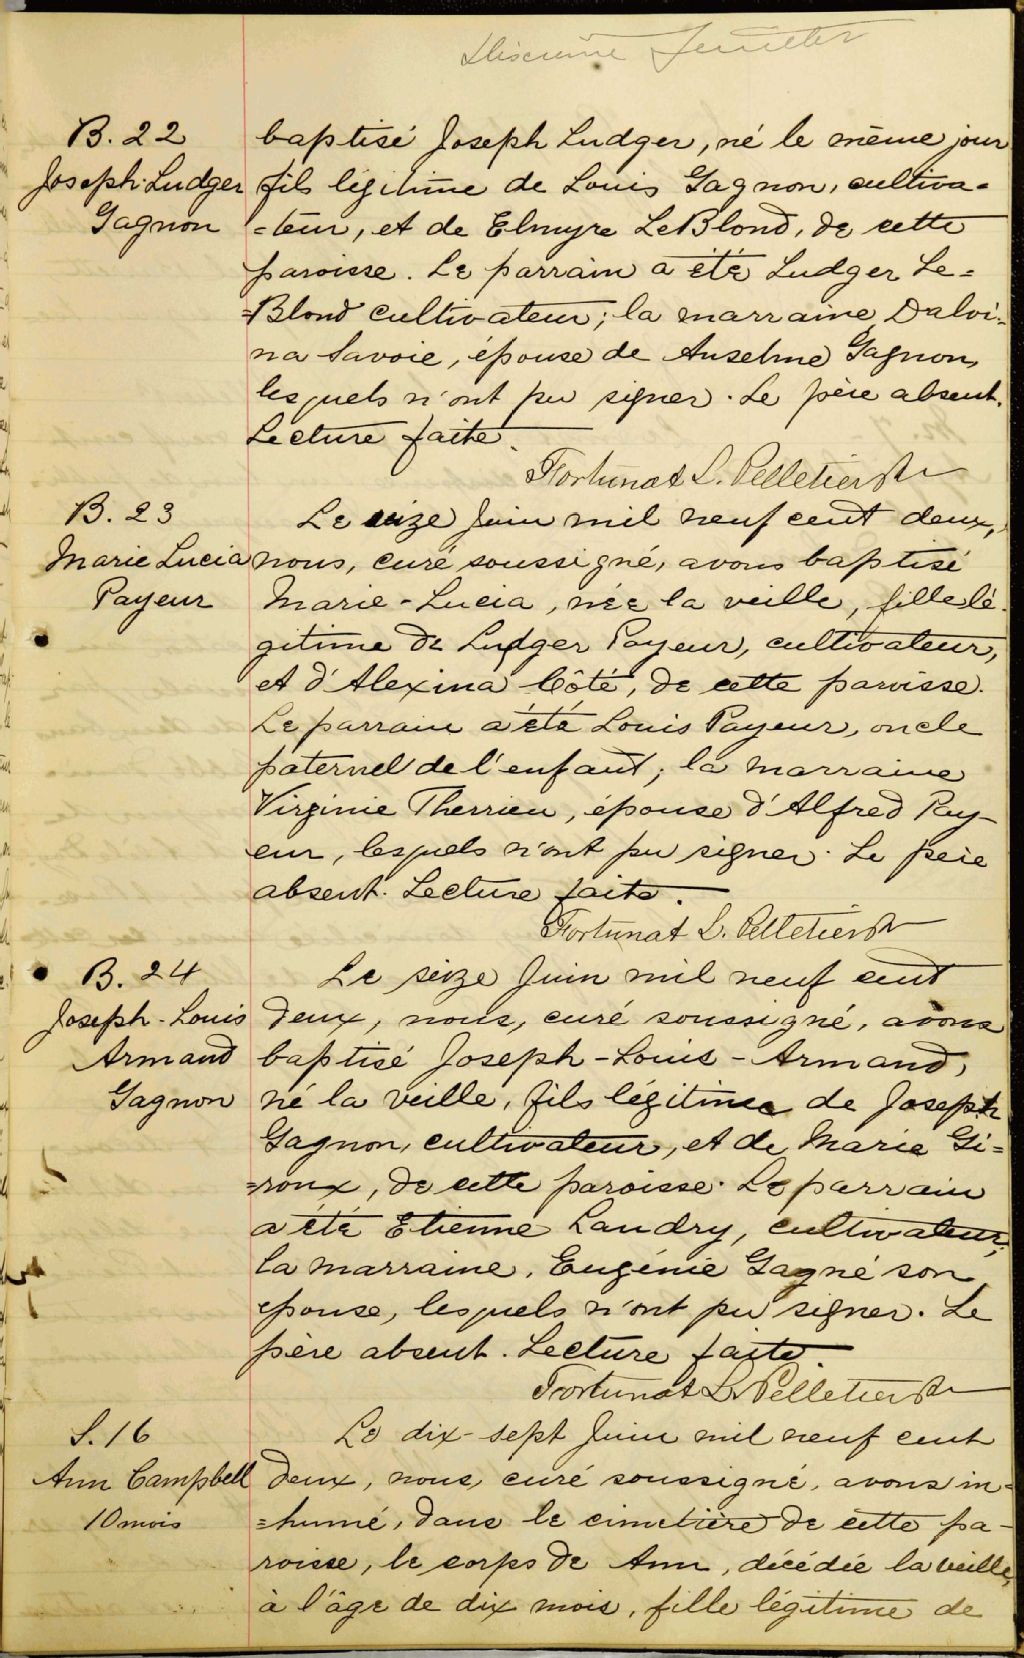 B. 22
Joseph-Ludger
Gagnon
baptisé Joseph Ludger, né le même jour
fils légitime de Louis Gagnon, cultiva-
-teur, et de Elmyre LeBlond, de cette
paroisse. Le parrain a été Ludger Le=
=Blond cultivateur; la marraine Dalvi-
na Savoie, épouse de Anselme Gagnon,
lesquels n'ont pu signer. Le père absent.
Lecture faite.
Fortunat L. Pelletier Ptr
B. 23
Marie Lucia
Payeur
Le seize Juin mil neuf cent deux,
nous, curé soussigné, avons baptisé
Marie-Lucia, née la veille, fille lé-
gitime de Ludger Payeur, cultivateur,
et d'Alexina Côté, de cette paroisse.
Le parrain a été Louis Payeur, oncle
paternel de l'enfant; la marraine
Virginie Therrien, épouse d'Alfred Pay-
eur, lesquels n'ont pu signer. Le père
absent. Lecture faite.
Fortunat L. Pelletier Ptr
B. 24
Joseph-Louis
Armand
Gagnon
Le seize Juin mil neuf cent
deux, nous, curé soussigné, avons
baptisé Joseph-Louis-Armand,
né la veille, fils légitime de Joseph
Gagnon, cultivateur, et de Marie Gi=
=roux, de cette paroisse. Le parrain
a été Etienne Landry, cultivateur;
la marraine, Eugénie Gagné son
épouse, lesquels n'ont pu signer. Le
père absent. Lecture faite.
Fortunat L. Pelletier Ptr
S. 16
Ann Campbell
10 mois
Le dix-sept Juin mil neuf cent
deux, nous, curé soussigné, avons in=
=humé, dans le cimetière de cette pa-
roisse, le corps de Ann, décédée la veille,
à l'âge de dix mois, fille légitime de